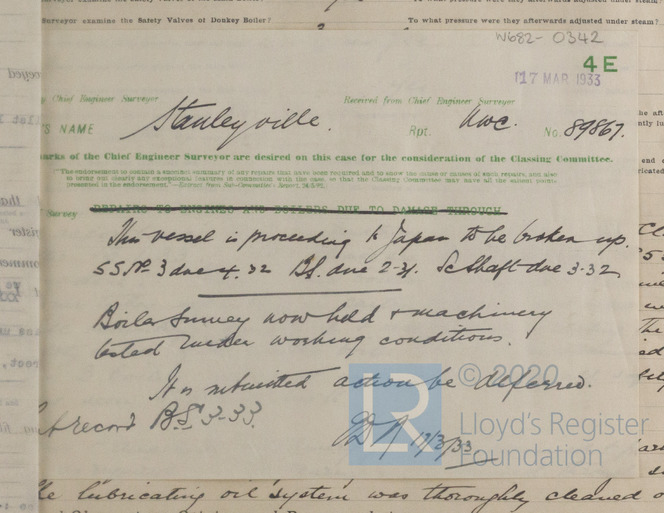 Surveyor examine the Safety Valves of Donkey Boiler?
To what pressure were they afterwards adjusted under steam?
W682-0342
4E
17 MAR 1933
Chief Engineer Surveyor
Received from Chief Engineer Surveyor
'S NAME Stanleyville. Rpt. Nwc. No. 89867.
arks of the Chief Engineer Surveyor are desired on this case for the consideration of the Classing Committee.
"The endorsement to contain a succinct summary of any repairs that have been required and to show the cause or causes of such repairs, and also
to bring out clearly any exceptional features in connection with the case, so that the Classing Committee may have all the salient points
presented in the endorsement."—Extract from Sub-Committee's Report,
Survey REPAIRS TO ENGINES AND BOILERS DUE TO DAMAGE THROUGH
This vessel is proceeding to Japan to be broken up.
SS No. 3 due 4.32 BS. due 2-31. Sc Shaft due 3-32
Boiler Survey now held & machinery
tested under working conditions.
It is submitted action be deferred.
record BS 3-33.
17/3/33
© 2020
LR
Lloyd's Register
Foundation
The lubricating oil system was thoroughly cleaned